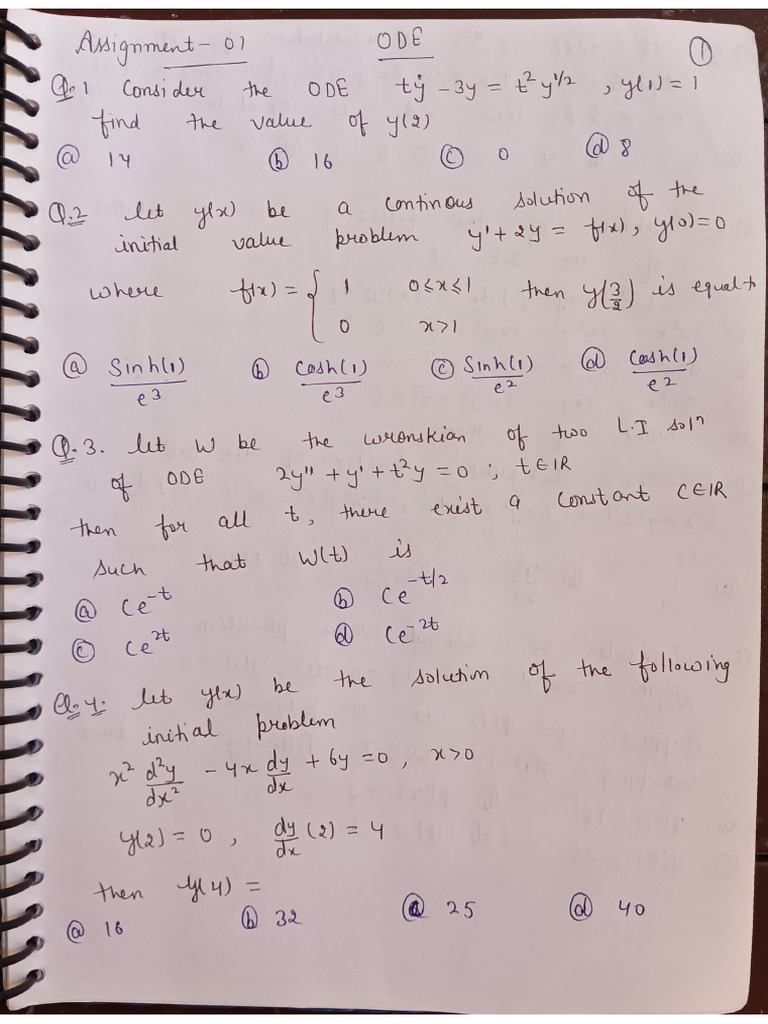 Assignment-01 ODE ①
Q.1 Consider the ODE tẏ - 3y = t² y^1/2 , y(1) = 1
find the value of y(2)
ⓐ 14 ⓑ 16 ⓒ 0 ⓓ 8
Q.2 let y(x) be a continous solution of the
initial value problem y' + 2y = f(x), y(0)=0
where f(x) = { 1 0≤x≤1 then y(3/2) is equal to
0 x>1
ⓐ Sinh(1)/e³ ⓑ Cosh(1)/e³ ⓒ Sinh(1)/e² ⓓ Cosh(1)/e²
Q.3. let W be the wronskian of two L.I solⁿ
of ODE 2y'' + y' + t²y = 0 ; t∈IR
then for all t, there exist a constant C∈IR
such that W(t) is
ⓐ Ce^-t ⓑ Ce^-t/2
ⓒ Ce^2t ⓓ Ce^-2t
Q.4. let y(x) be the solution of the following
initial problem
x² d²y/dx² - 4x dy/dx + 6y = 0, x>0
y(2) = 0 , dy/dx (2) = 4
then y(4) =
ⓐ 16 ⓑ 32 ⓒ 25 ⓓ 40